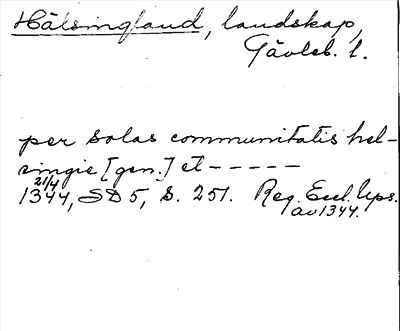 Hälsingland, landskap,
Gävleb. l.
per solas communitatis hel-
singie [gen.] et - - - - -
21/4
1344, SD 5, S. 251. Reg. Eccl. Ups.
av 1344.